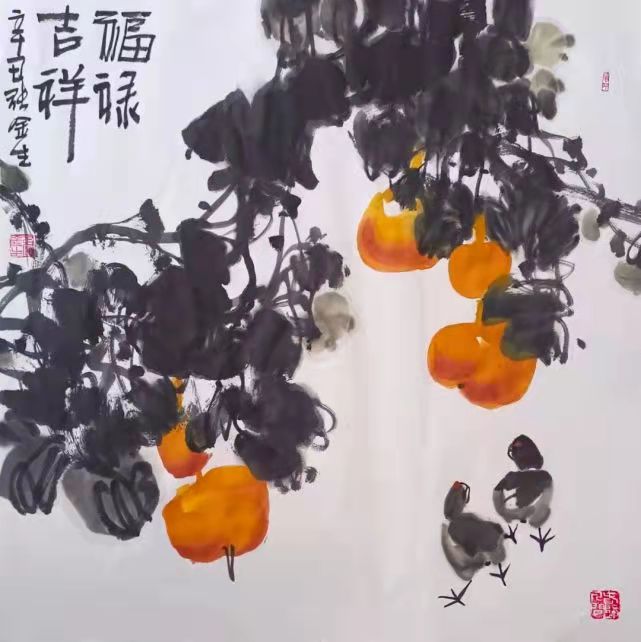 福禄
吉祥
辛丑秋金生